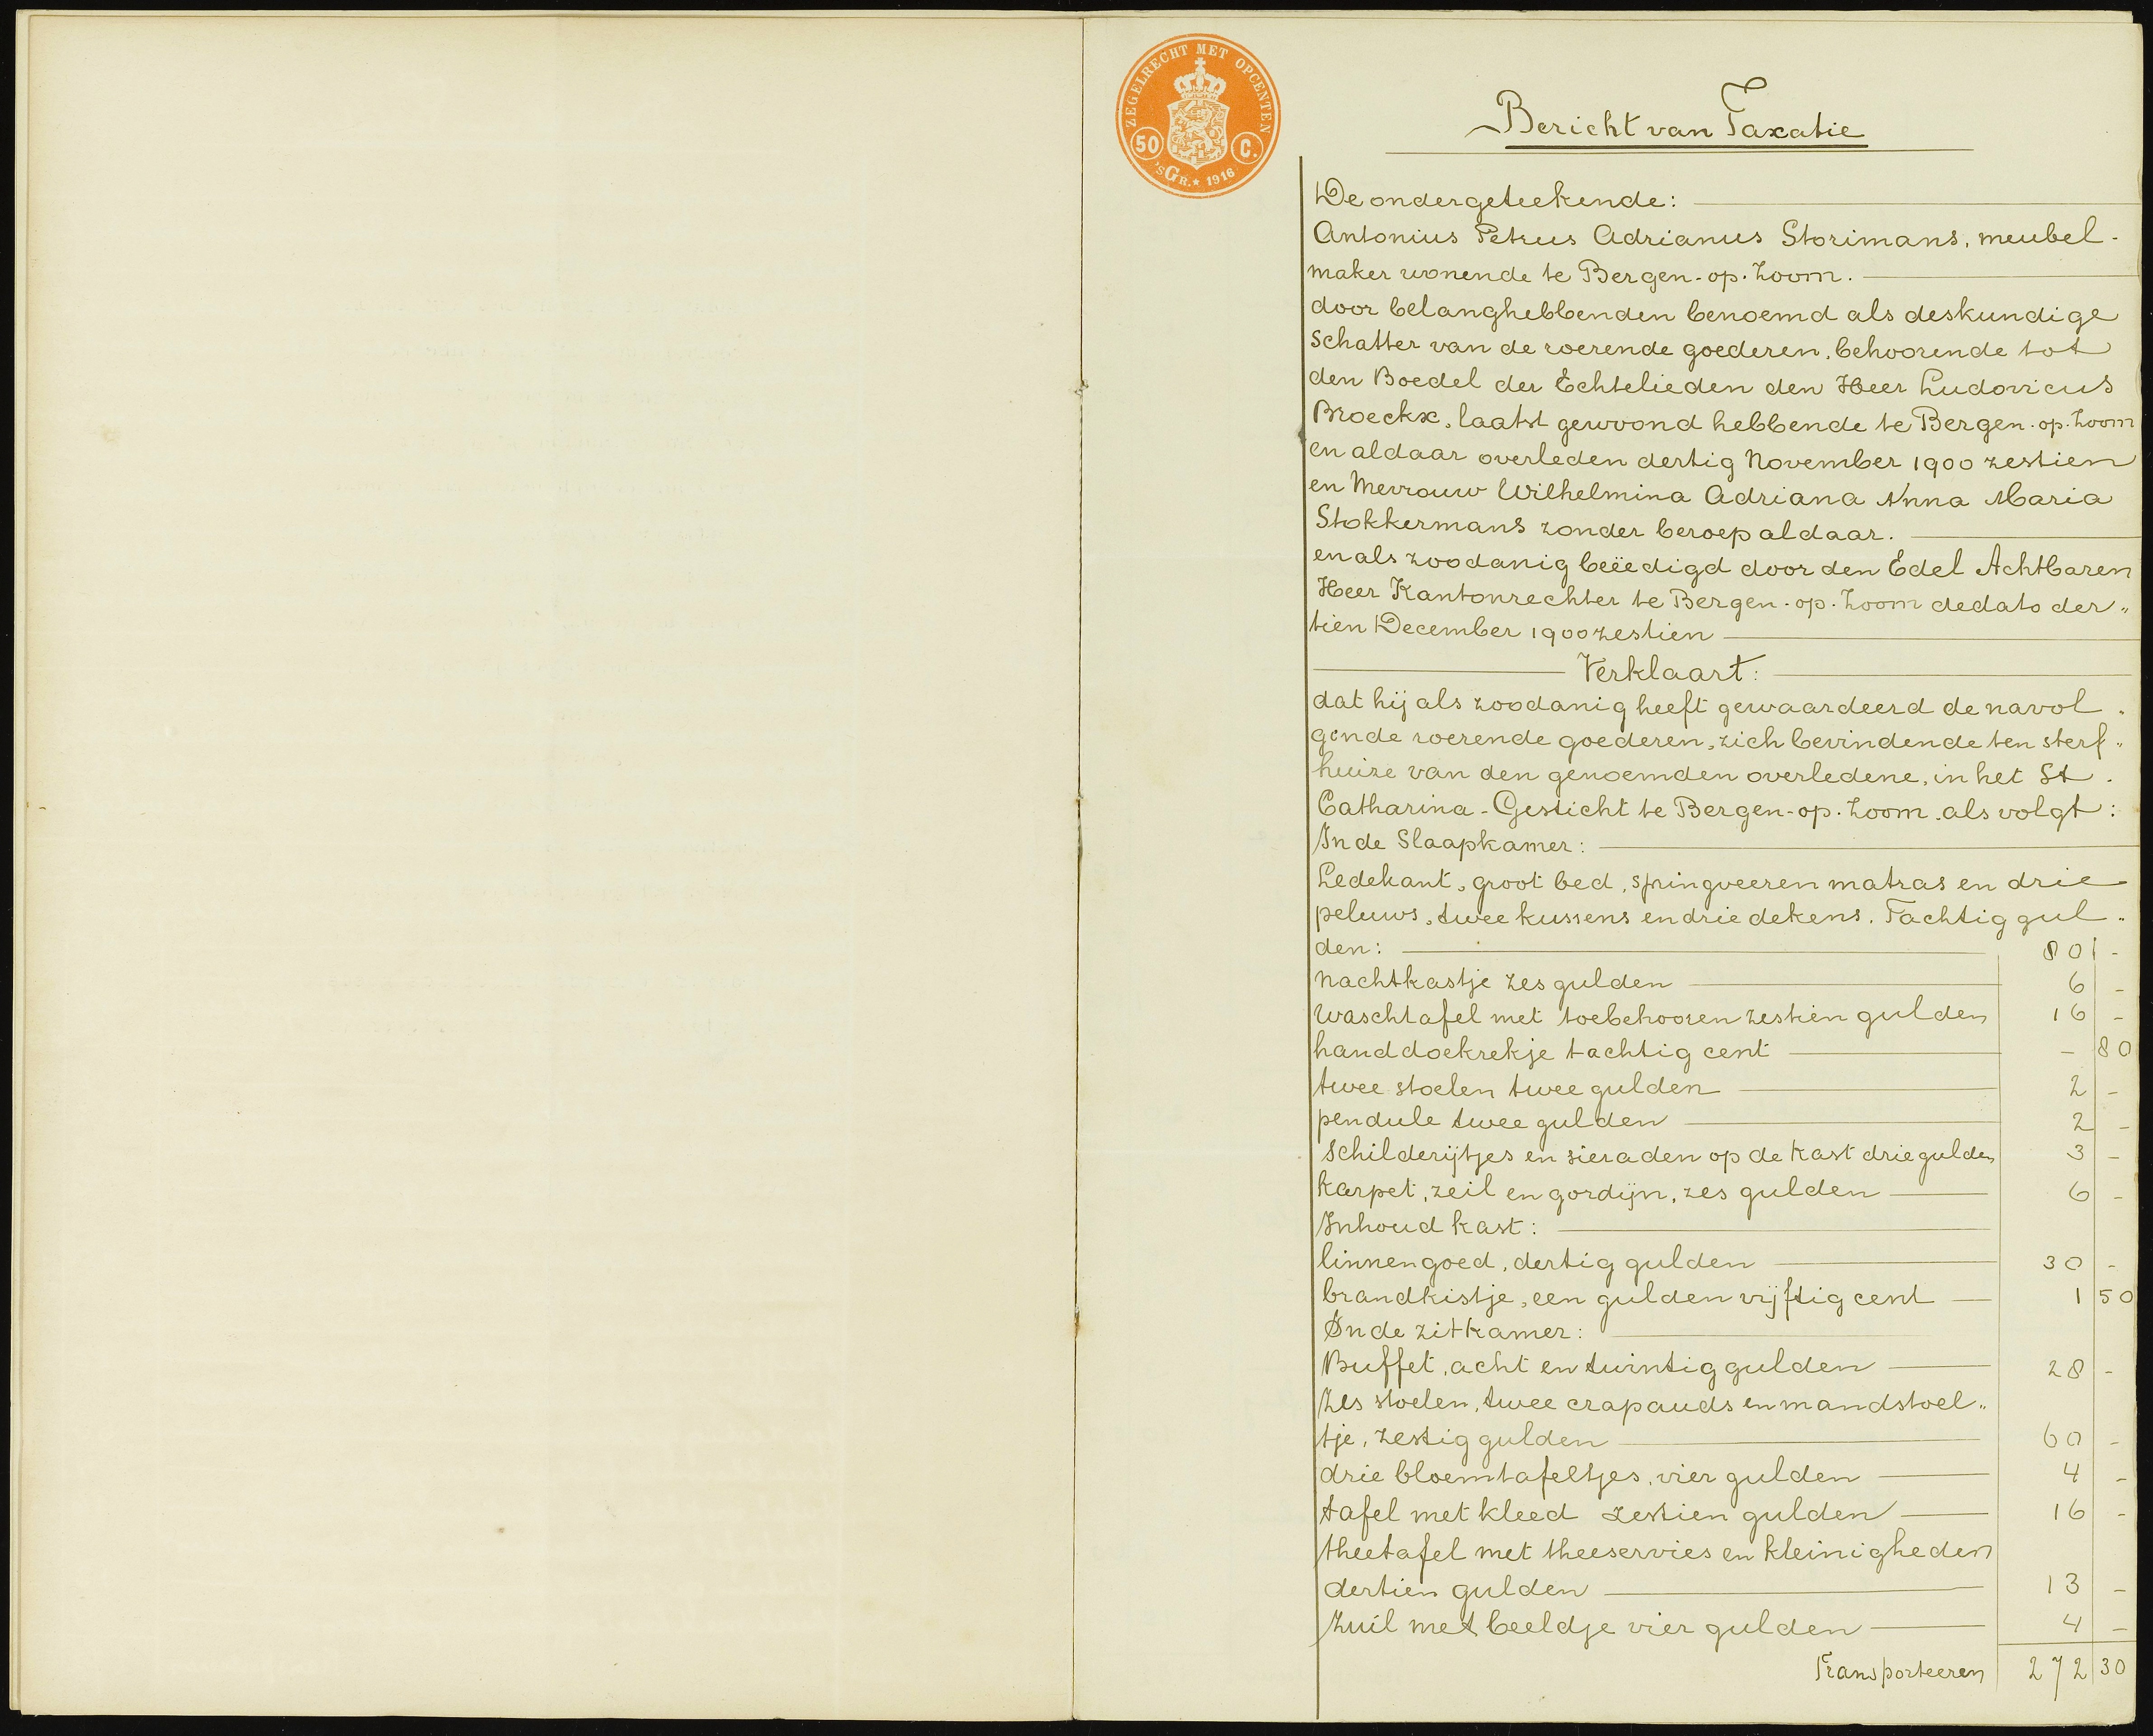 ZEGELRECHT MET OPCENTEN
50 C.
'SGR. * 1916
Bericht van Taxatie
De ondergeteekende:
Antonius Petrus Adrianus Storimans, meubel-
maker wonende te Bergen-op-Zoom.
door belanghebbenden benoemd als deskundige
schatter van de roerende goederen, behoorende tot
den Boedel der Echtelieden den Heer Ludovicus
Broeckx, laatst gewoond hebbende te Bergen-op-Zoom
en aldaar overleden dertig November 1900 zestien
en Mevrouw Wilhelmina Adriana Anna Maria
Stokkermans zonder beroep aldaar.
en als zoodanig beëedigd door den Edel Achtbaren
Heer Kantonrechter te Bergen-op-Zoom dedato der„
tien December 1900 zestien
Verklaart:
dat hij als zoodanig heeft gewaardeerd de navol-
gende roerende goederen, zich bevindende ten sterf„
huize van den genoemden overledene, in het St.
Catharina-Gesticht te Bergen-op-Zoom, als volgt:
In de Slaapkamer:
Ledekant, groot bed, springveeren matras en drie
peluws, twee kussens en drie dekens. Tachtig gul„
den: 80 -
nachtkastje zes gulden 6 -
waschtafel met toebehooren zestien gulden 16 -
handdoekrekje tachtig cent - 80
twee stoelen twee gulden 2 -
pendule twee gulden 2 -
schilderijtjes en sieraden op de kast drie gulden 3 -
karpet, zeil en gordijn, zes gulden 6 -
Inhoud kast:
linnengoed, dertig gulden 30 -
brandkistje, een gulden vijftig cent 1 50
In de zitkamer:
Buffet, acht en twintig gulden 28 -
Zes stoelen, twee crapauds en mandstoel„
tje, zestig gulden 60 -
drie bloemtafeltjes, vier gulden 4 -
tafel met kleed zestien gulden 16 -
theetafel met theeservies en kleinigheden
dertien gulden 13 -
Zuil met beeldje vier gulden 4 -
Transporteeren 272 30